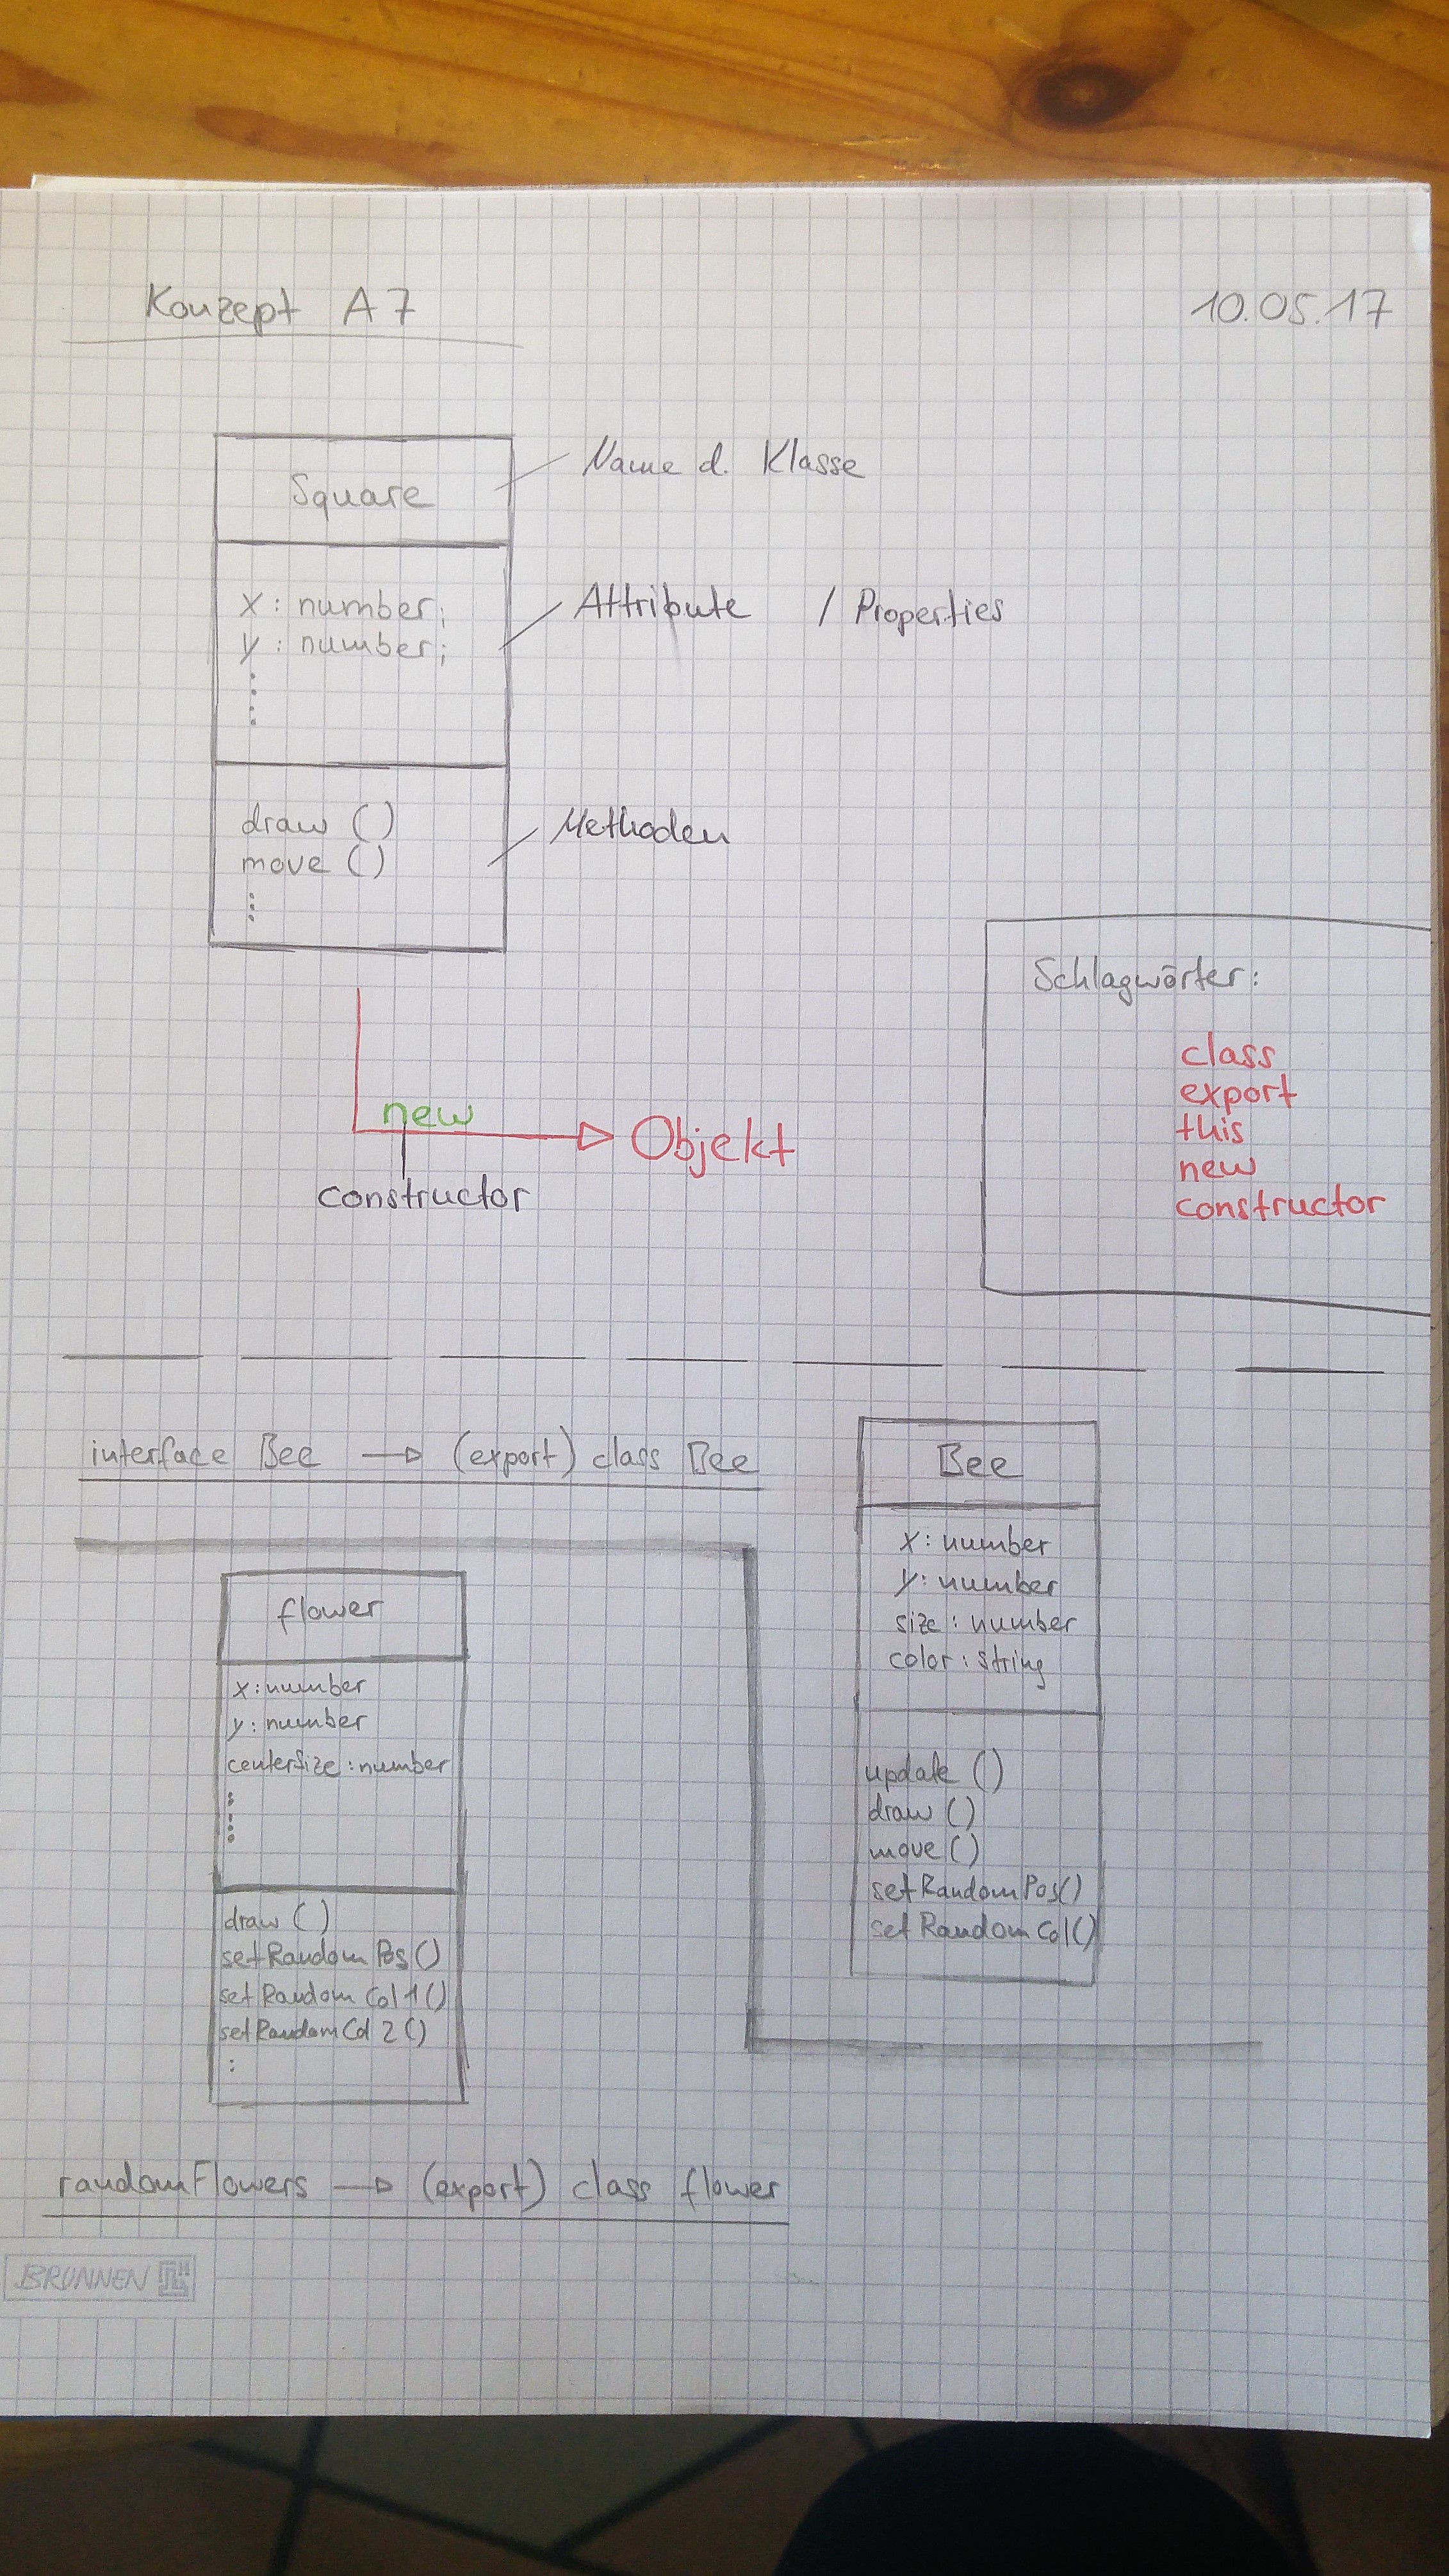 Konzept A7
10.05.17
Square
Name d. Klasse
x : number;
y : number;
Attribute / Properties
draw ()
move ()
Methoden
new
constructor
Objekt
Schlagwörter:
class
export
this
new
constructor
interface Bee → (export) class Bee
Bee
x : number
y : number
size : number
color : string
update ()
draw ()
move ()
setRandomPos()
setRandomCol()
flower
x : number
y : number
centerSize : number
draw ()
setRandomPos ()
setRandomCol1 ()
setRandomCol2 ()
randomFlowers → (export) class flower
BRUNNEN